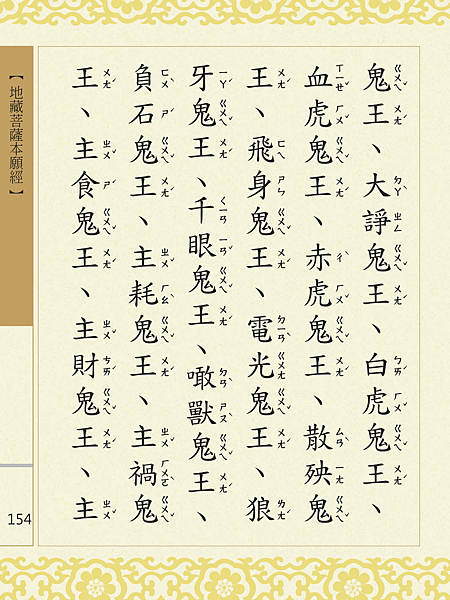 鬼王、大諍鬼王、白虎鬼王、
血虎鬼王、赤虎鬼王、散殃鬼
王、飛身鬼王、電光鬼王、狼
牙鬼王、千眼鬼王、噉獸鬼王、
負石鬼王、主耗鬼王、主禍鬼
王、主食鬼王、主財鬼王、主
【地藏菩薩本願經】
154